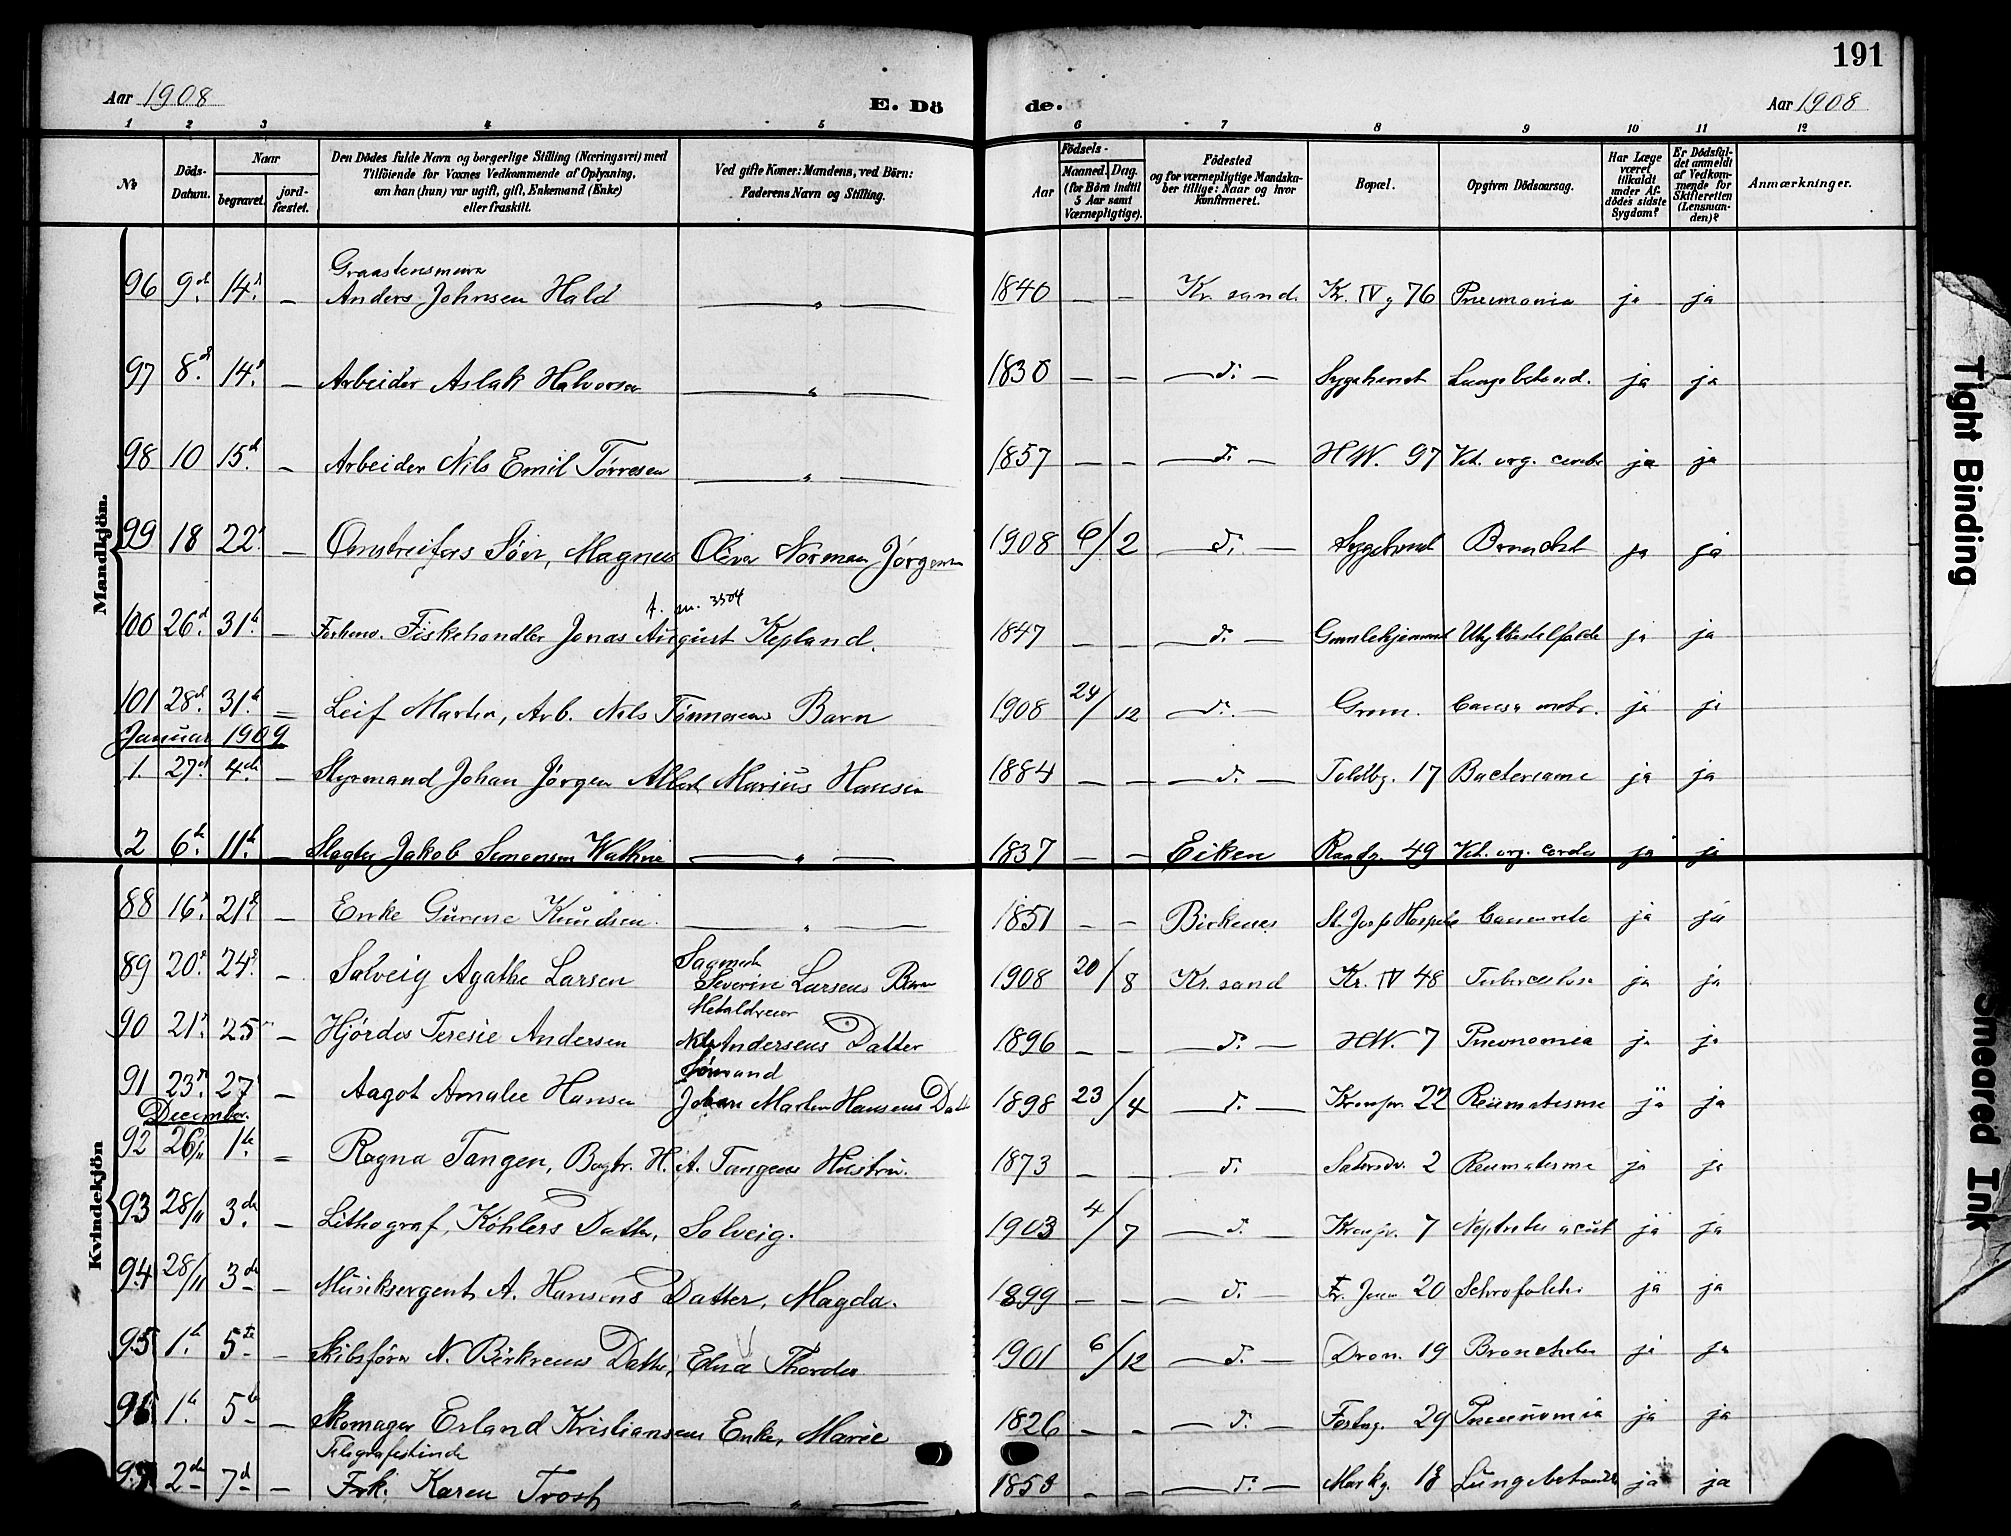 191
Aar 1908 E. Dö de. Aar 1908
1 2 3 4 5 6 7 8 9 10 11 12
№
Döds-Datum.
Naar
begravet.
jord-fæstet.
Den Dödes fulde Navn og borgerlige Stilling (Næringsvei) med
Tilföiende for Voxnes Vedkommende af Oplysning,
om han (hun) var ugift, gift, Enkemand (Enke)
eller fraskilt.
Ved gifte Koner: Mandens, ved Börn:
Faderens Navn og Stilling.
Födsels-
Aar
Maaned. Dag.
(for Börn indtil
5 Aar samt
Værnepligtige).
Födested
og for værnepligtige Mandska-
ber tillige: Naar og hvor
konfirmeret.
Bopæl.
Opgiven Dödsaarsag.
Har Læge
været
tilkaldt
under Af-
dödes sidste
Sygdom?
Er Dödsfal-
det anmeldt
af Vedkom-
mende for
Skifteretten
(Lensman-
den)?
Anmærkninger.
Mandkjön.
96 9d. 14d. — Anders Johnsen Hald — " — 1840 — — Kr. sand. Kr. IV g 76 Pneumonia ja ja
97 8d. 14d. — Arbeider Aslak Halvorsen — " — 1830 — — — d. — ja ja
98 10 15d — Arbeider Nils Emil Törresen — " — 1857 — — — d. — H.W. 97 Vit. org. ja ja
99 18 22d. — Omstreifers Sön, Magnus Oliver Norman Jörgensen 1908 6/2 — d. — ja ja
t. nr. 3504
100 26d. 31te — Forhenv. Fiskehandler Jonas August Kepland. 1847 — — — d. — Gamlehjemmet ja ja
101 28d. 31te — Leif Martin, Arb. Nils Tönnesens Barn 1908 24/12 — d. — Grim. ja ja
Januar 1909
1. 27d. 4de — Styrmand Johan Jörgen Albert Marius Hansen 1884 — — — d. — Toldbg. 17 ja ja
2 6te. 11te — Slagter Jakob Simonsen Watne — " — 1837 — — Eiken Raadg. 49 Vit. org. cordis ja ja
Kvindekjön
88 16d. 21d. — Enke Gurine Knudsen. — " — 1851 — — Birkenes St. Josfs Hospital ja ja
Sagmester
89 20d. 24d. — Solveig Agathe Larsen Severin Larsens Barn 1908 20/8 Kr. sand Kr. IV 48 Tuberculose ja ja
Metaldreier
90 21d. 25 — Hjördis Teresie Andersen Nils Andersens Datter 1896 — — — d. — H.W. 7 Pneunomia ja ja
Sömand
91 23d. 27 — Aagot Amalie Hansen Johan Martin Hansens Datter 1898 23/4 — d. — Kronpr. 22 Reumatisme ja ja
December.
92 26/11 1te. — Ragna Tangen, Bogtr. H. A. Tangens Hustru. 1873 — — — d. Setersdv. 2 Reumatisme ja ja
93 28/11 3de. — Lithograf, Köhlers Datter, Solveig. 1903 4/7 — d. Kronpr. 7 ja ja
94 28/11 3de — Musiksergent A. Hansens Datter, Magda. 1899 — — — d. — 20 ja ja
95 1te. 5te — Skibsförer N. Birkrems Datter, Elna Thordis 1901 6/12 — d. — Dron. 19 Bronchitis ja ja
96 1te 5te — Skomager Erland Kristiansens Enke, Marie 1826 — — — d. — Festng. 29 Pneunomia ja ja
Telegrafistinde
97 2de 7d — Frk. Karen Trost — " — 1858 — — — d. — Markg. 18 ja ja
Tight Binding
Smeared Ink